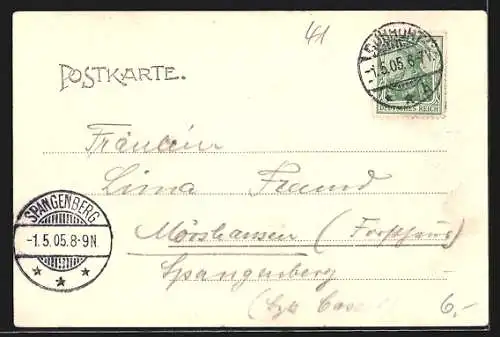 41
POSTKARTE.
-1.5.05.8-
DEUTSCHES REICH
Fräulein
Lina Freund
Mörshausen (Forsthaus)
Spangenberg
(Bez Cassel)
SPANGENBERG
-1.5.05.8-9N
6,-